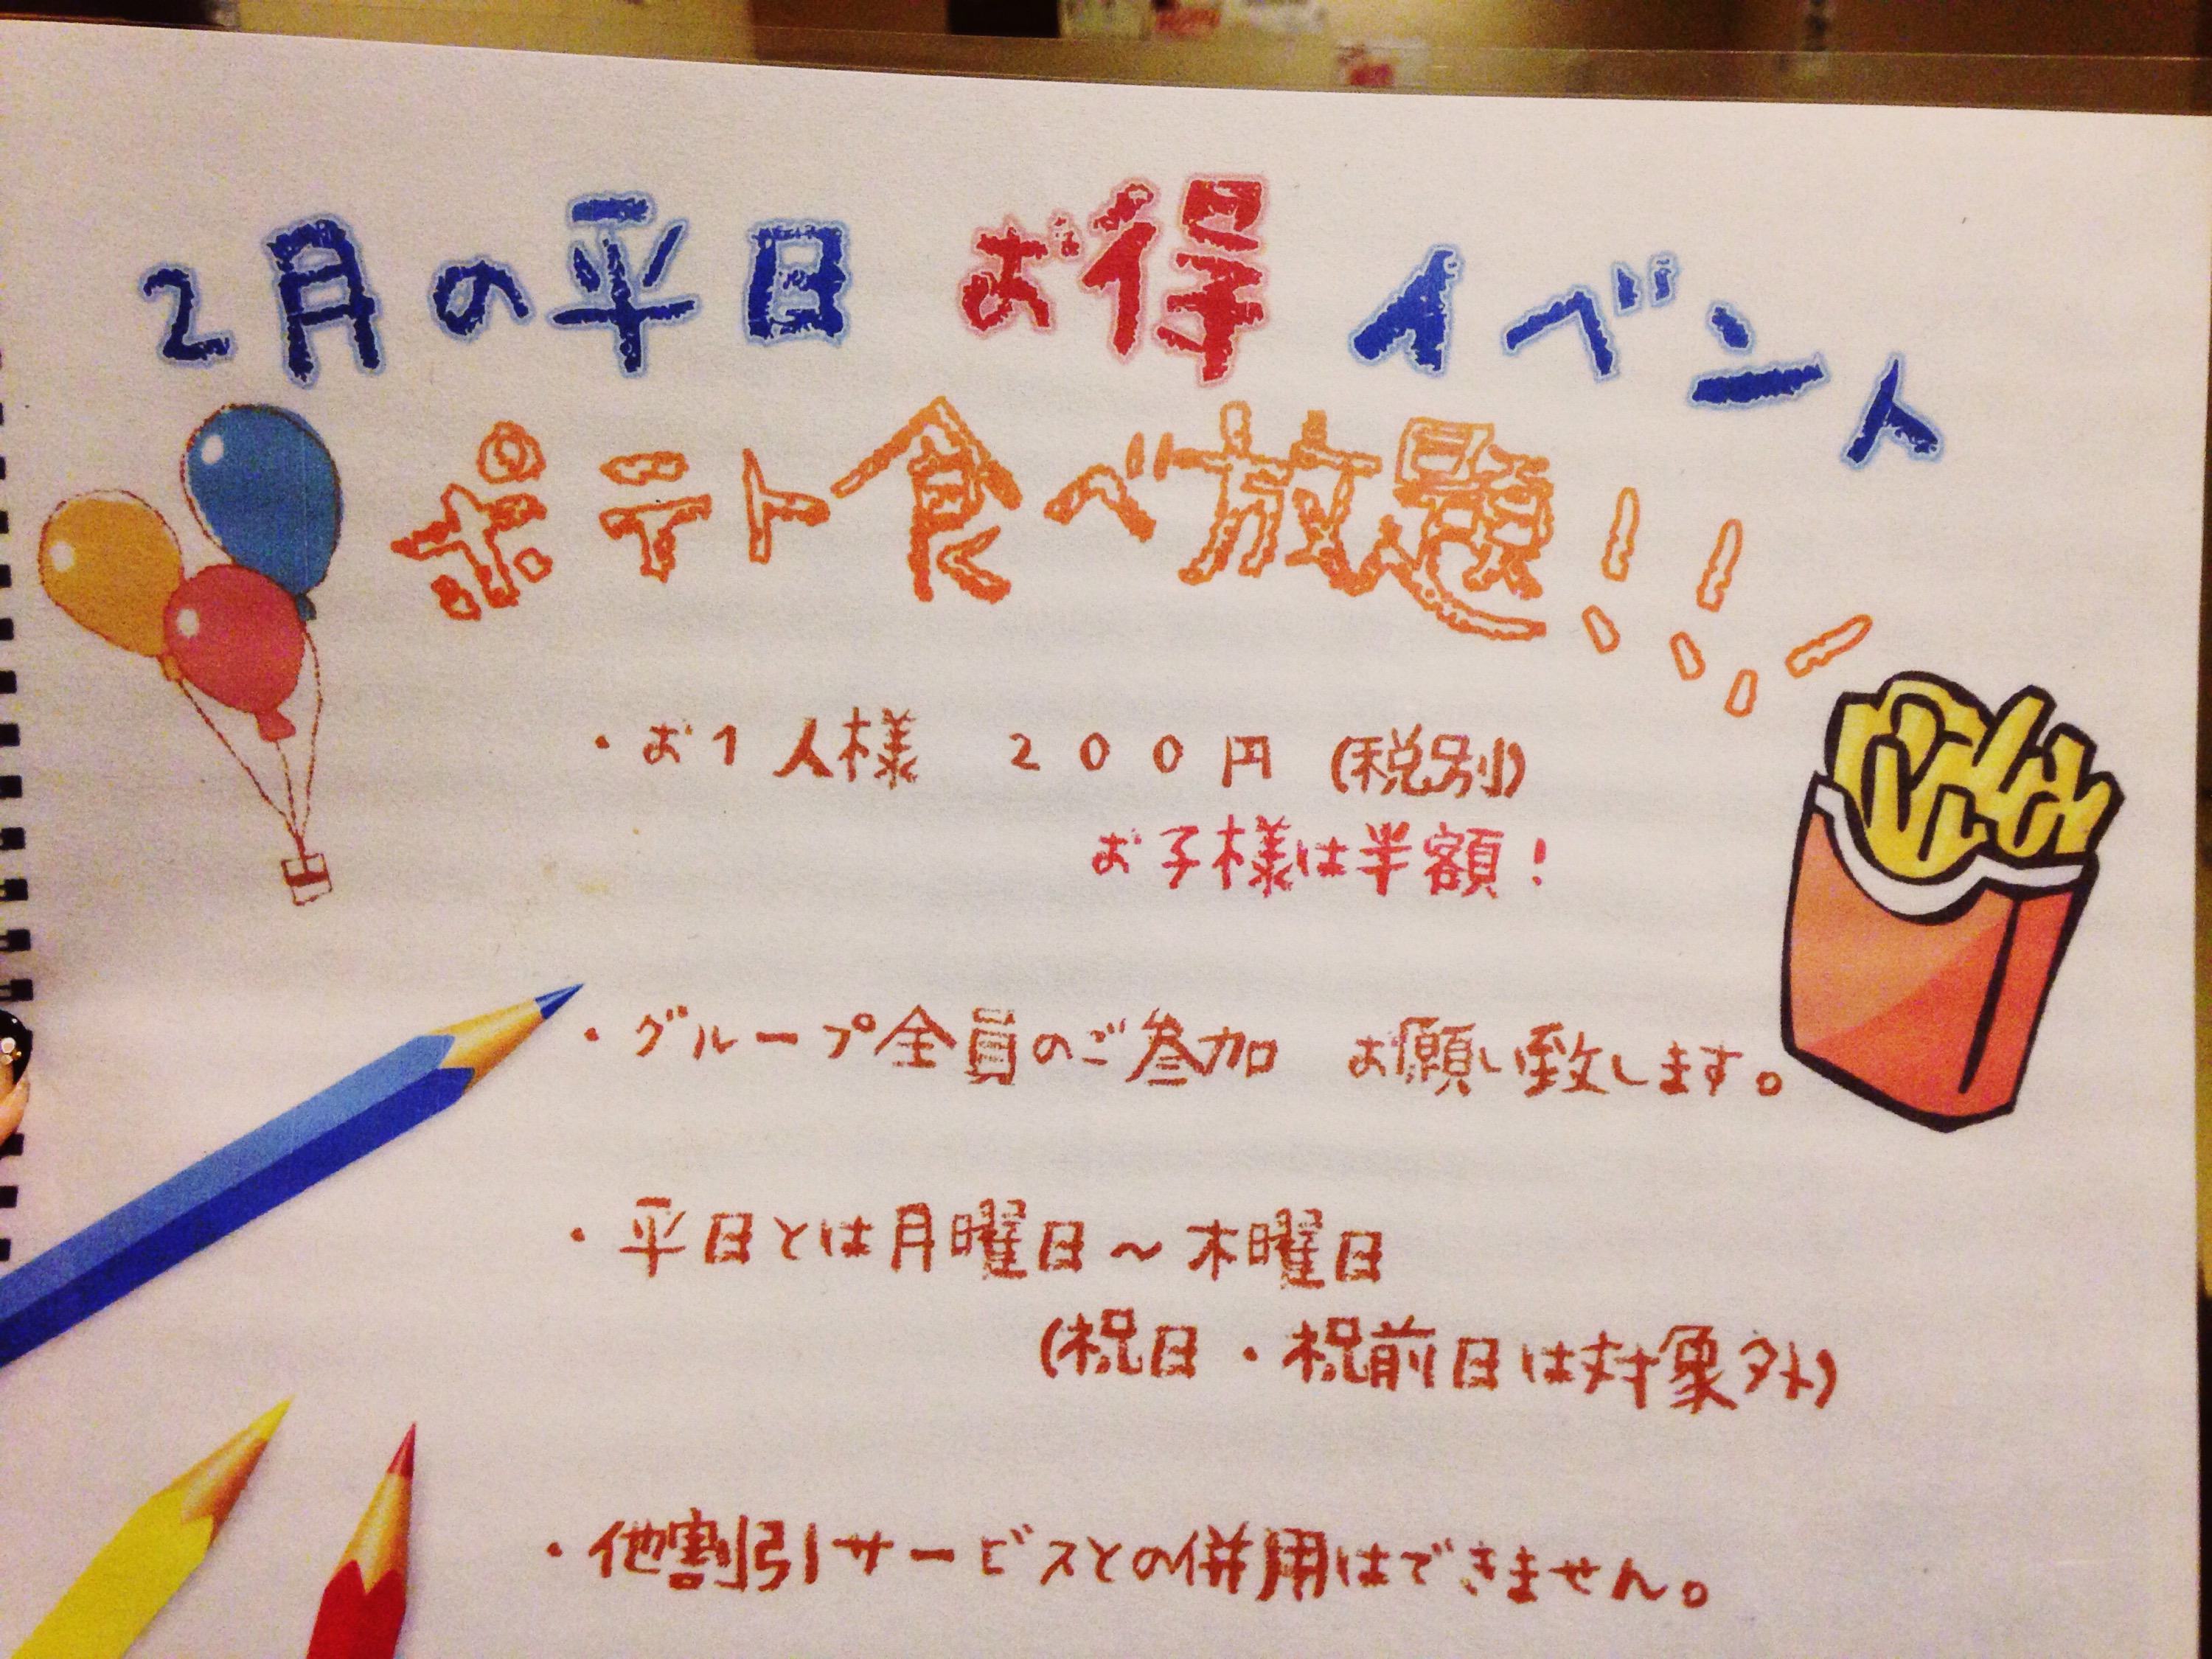 2月の平日 お得 イベント
ポテト食べ放題!!
・お1人様 200円 (税別)
お子様は半額!
・グループ全員のご参加 お願い致します。
・平日とは月曜日~木曜日
(祝日・祝前日は対象外)
・他割引サービスとの併用はできません。